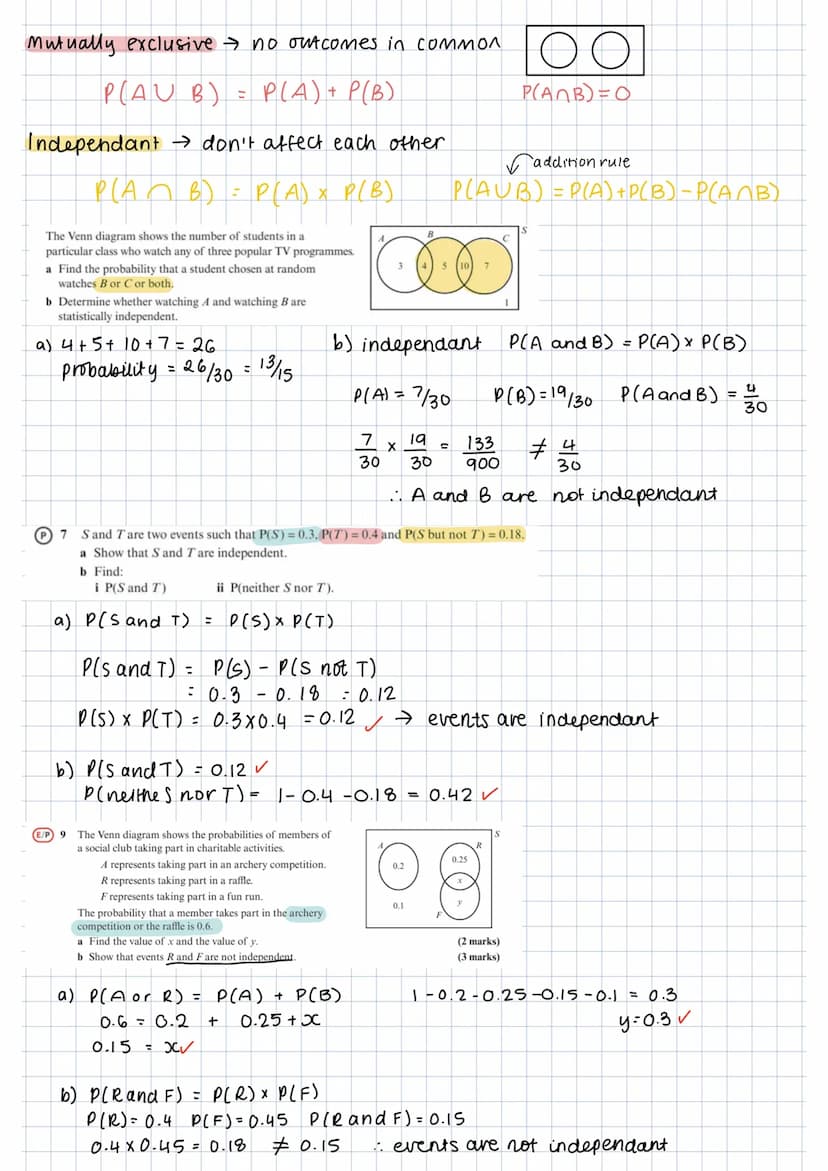 Mutually exclusive → no outcomes in common
P(A∪B) = P(A) + P(B)
P(A∩B)=0
Independant → don't affect each other
addition rule
P(A∩B) = P(A) × P(B)
P(A∪B) = P(A)+P(B)-P(A∩B)
The Venn diagram shows the number of students in a
particular class who watch any of three popular TV programmes.
a Find the probability that a student chosen at random
watches B or C or both.
b Determine whether watching A and watching B are
statistically independent.
A B C S
3 4 5 10 7
1
a) 4+5+10+7=26
probability = 26/30 = 13/15
b) independant P(A and B) = P(A) × P(B)
P(A) = 7/30 P(B)=19/30 P(A and B) = 4/30
7/30 × 19/30 = 133/900 ≠ 4/30
∴ A and B are not independant
(P) 7 S and T are two events such that P(S) = 0.3, P(T) = 0.4 and P(S but not T) = 0.18.
a Show that S and T are independent.
b Find:
i P(S and T) ii P(neither S nor T).
a) P(S and T) = P(S) × P(T)
P(S and T) = P(S) - P(S not T)
= 0.3 - 0.18 = 0.12
P(S) × P(T) = 0.3×0.4 = 0.12 ✓ → events are independant
b) P(S and T) = 0.12 ✓
P(neithe S nor T) = 1- 0.4 -0.18 = 0.42 ✓
(E/P) 9 The Venn diagram shows the probabilities of members of
a social club taking part in charitable activities.
A represents taking part in an archery competition.
R represents taking part in a raffle.
F represents taking part in a fun run.
The probability that a member takes part in the archery
competition or the raffle is 0.6.
a Find the value of x and the value of y. (2 marks)
b Show that events R and F are not independent. (3 marks)
S
A R
0.2 0.25
x
0.1 y
F
a) P(A or R) = P(A) + P(B)
0.6 = 0.2 + 0.25+x
0.15 = x✓
1-0.2-0.25-0.15-0.1 = 0.3
y=0.3 ✓
b) P(R and F) = P(R) × P(F)
P(R)= 0.4 P(F)=0.45 P(R and F)=0.15
0.4×0.45 = 0.18 ≠ 0.15 ∴ events are not independant